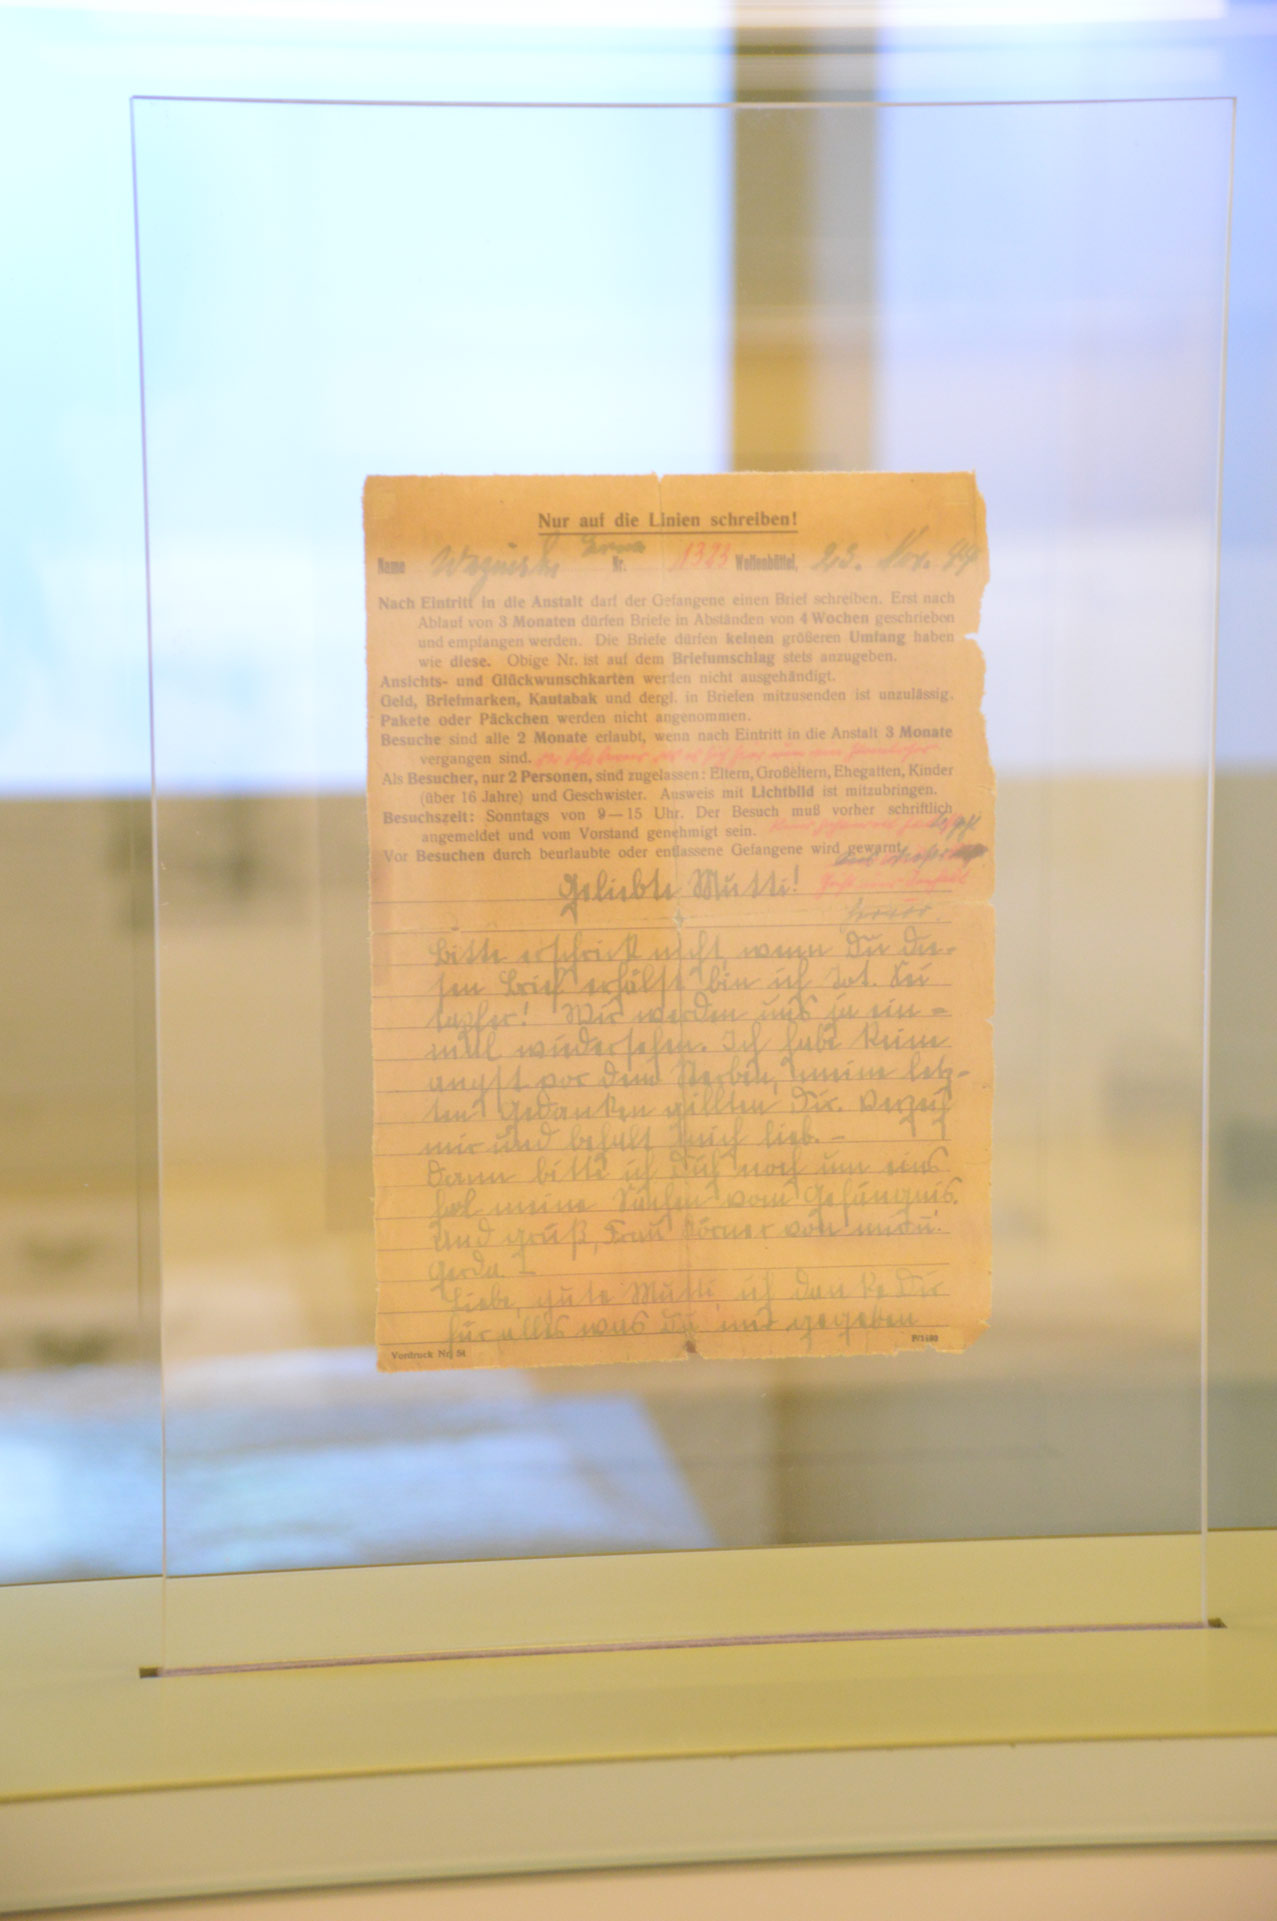 Nur auf die Linien schreiben!
Name Wazinski Erna Nr. 1323 Wolfenbüttel, 23. Nov. 44
Nach Eintritt in die Anstalt darf der Gefangene einen Brief schreiben. Erst nach
Ablauf von 3 Monaten dürfen Briefe in Abständen von 4 Wochen geschrieben
und empfangen werden. Die Briefe dürfen keinen größeren Umfang haben
wie diese. Obige Nr. ist auf dem Briefumschlag stets anzugeben.
Ansichts- und Glückwunschkarten werden nicht ausgehändigt.
Geld, Briefmarken, Kautabak und dergl. in Briefen mitzusenden ist unzulässig.
Pakete oder Päckchen werden nicht angenommen.
Besuche sind alle 2 Monate erlaubt, wenn nach Eintritt in die Anstalt 3 Monate
vergangen sind.
Als Besucher, nur 2 Personen, sind zugelassen: Eltern, Großeltern, Ehegatten, Kinder
(über 16 Jahre) und Geschwister. Ausweis mit Lichtbild ist mitzubringen.
Besuchszeit: Sonntags von 9—15 Uhr. Der Besuch muß vorher schriftlich
angemeldet und vom Vorstand genehmigt sein.
Vor Besuchen durch beurlaubte oder entlassene Gefangene wird gewarnt
Geliebte Mutti!
Bitte erschrick nicht, wenn Du die-
sen Brief erhälst bin ich Tot. Sei
tapfer! Wir werden uns ja ein-
mal wiedersehen. Ich habe keine
angst vor dem Sterben, meine letz-
ten Gedanken gillten Dir. Verzeih
mir und behalt mich lieb. -
Dann bitte ich Dich noch um eins
hol meine Sachen vom Gefängnis.
Und grüß, Frau Körner von mir u.
Gerda -
Liebe, gute Mutti ich danke Dir
für alles was Du mir gegeben
Vordruck Nr. 51